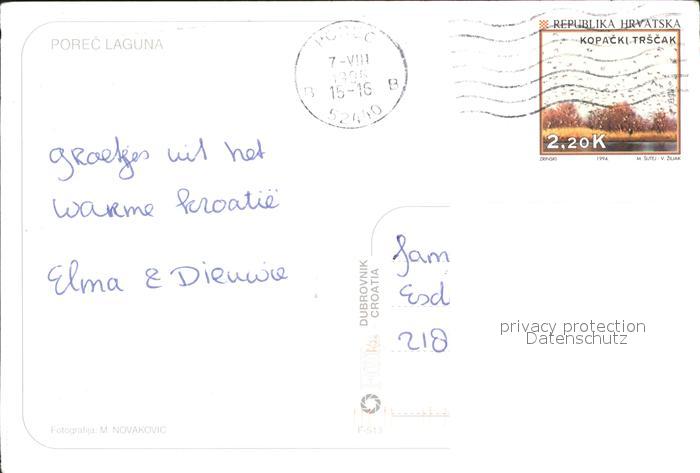 POREČ LAGUNA
POREČ
7-VIII
15-16
B B
52440
REPUBLIKA HRVATSKA
KOPAČKI TRŠČAK
2,20K
ZRINSKI 1994. M. ŠUTEJ - V. ŽILJAK
groetjes uit het
warme kroatië
Elma & Dieuwie
DUBROVNIK
CROATIA
fam
Esd
218
privacy protection
Datenschutz
Fotografija: M. NOVAKOVIĆ
F-513